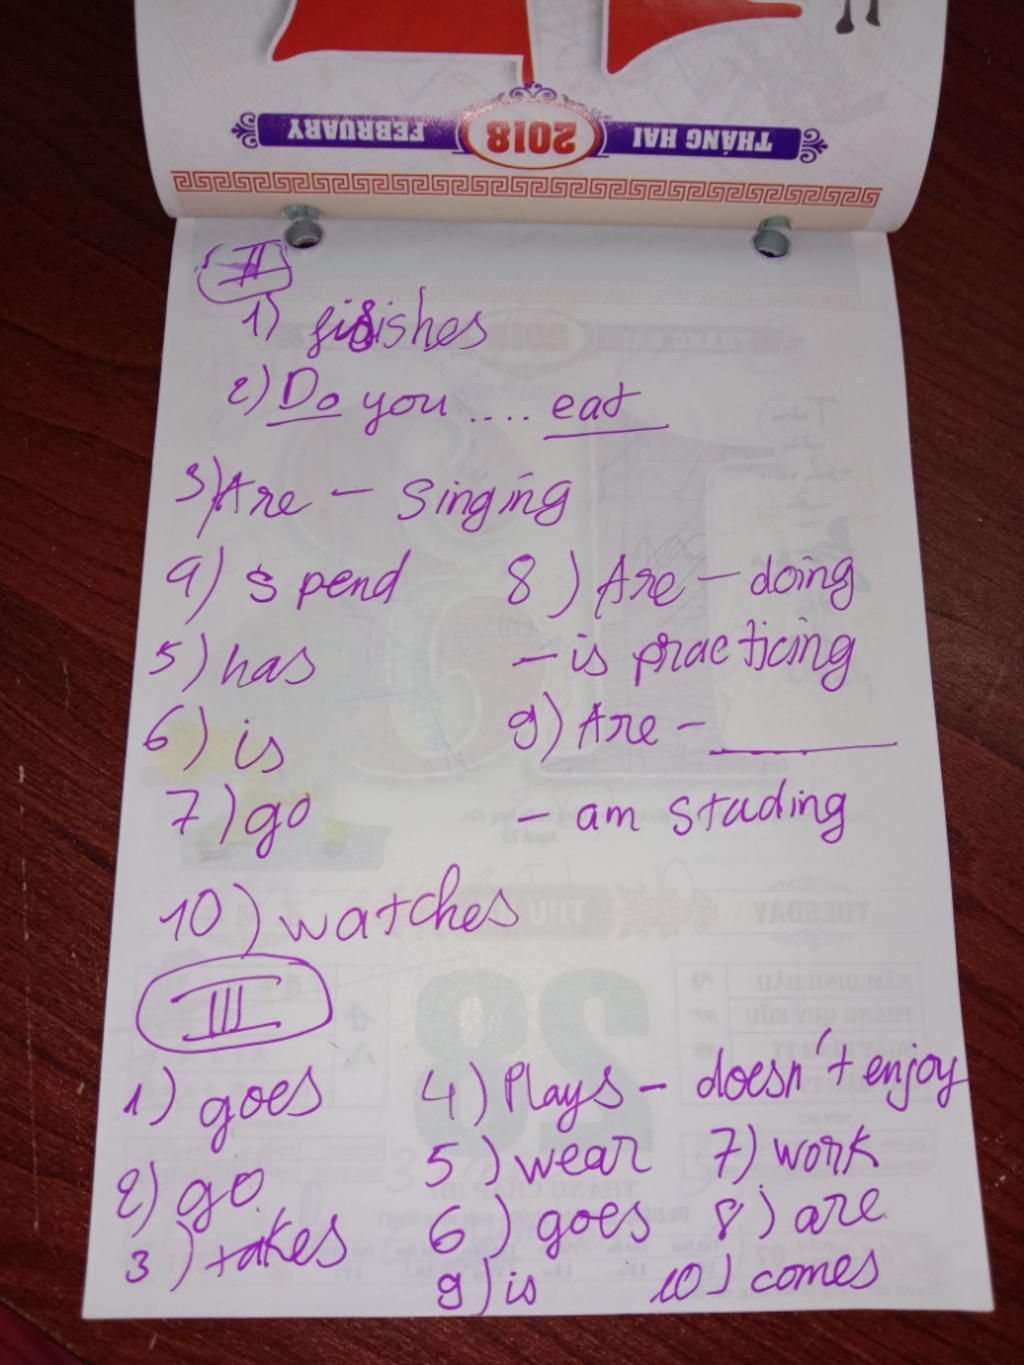 THÁNG HAI 2018 FEBRUARY
II
1) finishes
2) Do you .... eat
3) Are - singing
4) spend
5) has
6) is
7) go
8) Are - doing
- is practicing
9) Are - ______
- am studing
10) watches
III
1) goes
2) go
3) takes
4) Plays - doesn't enjoy
5) wear
6) goes
7) work
8) are
9) is
10) comes
TUESDAY
28